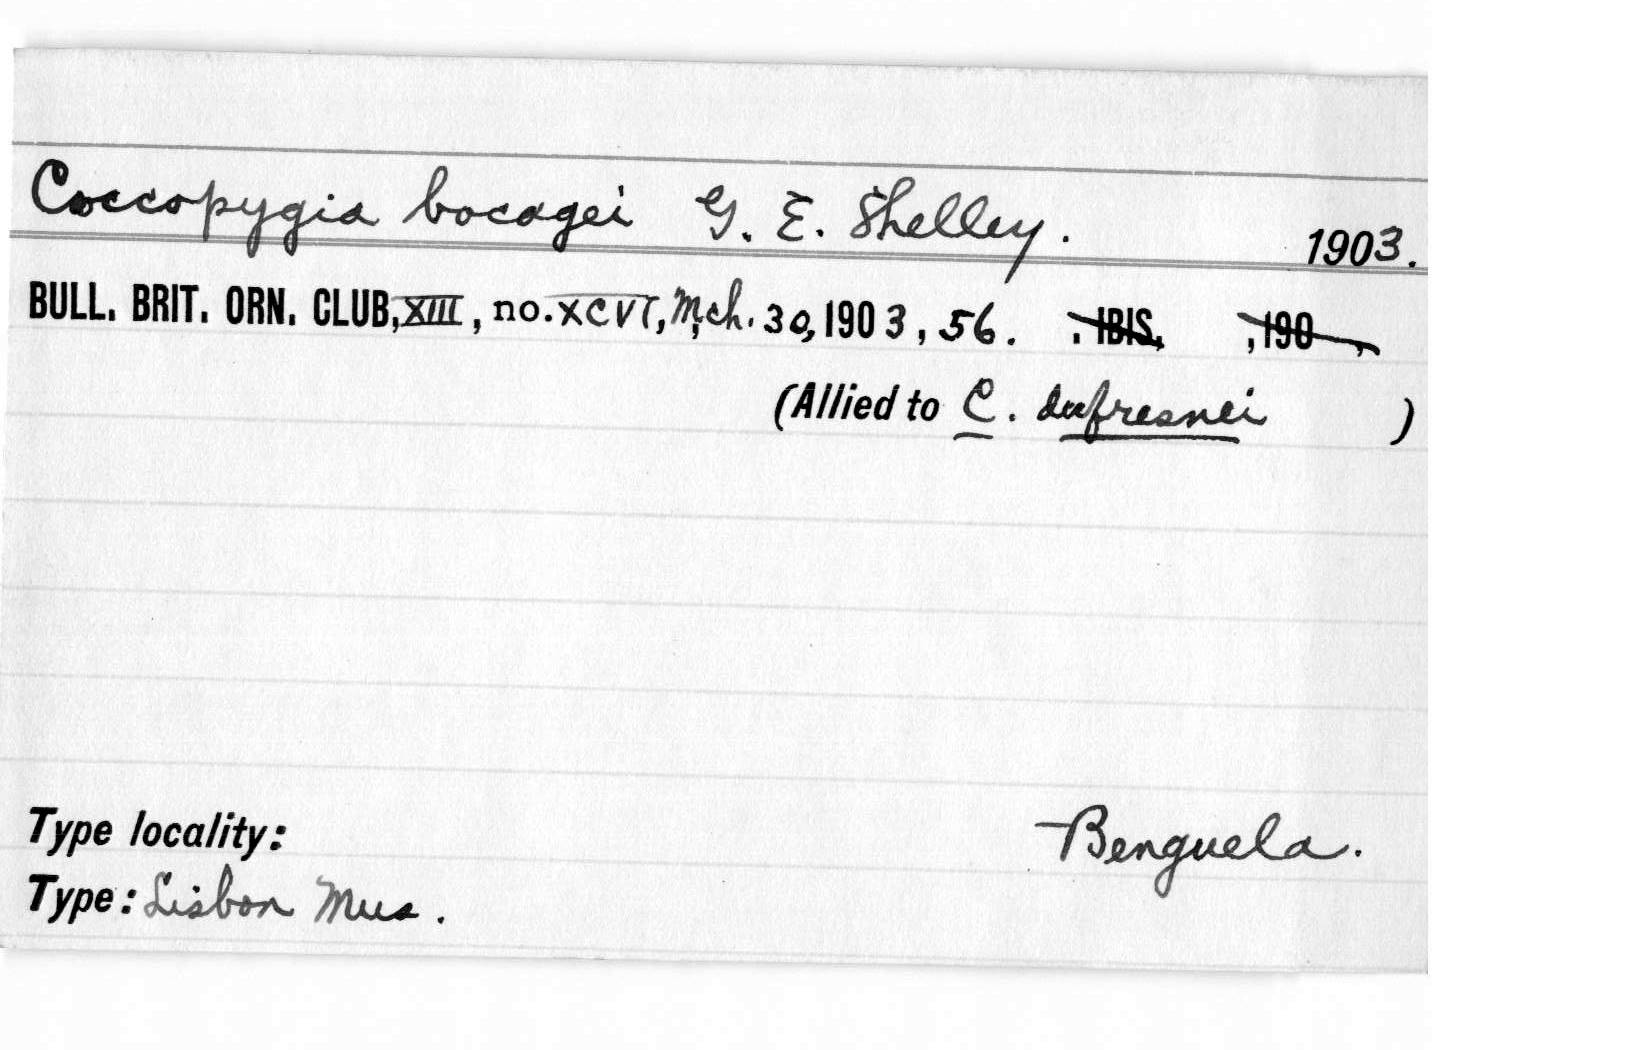 Coccopygia bocagei G. E. Shelley. 1903.
BULL. BRIT. ORN. CLUB, XIII, no. XCVI, Mch. 30, 1903, 56. . IBIS, , 190 ,
(Allied to C. dufresnei )
Type locality: Benguela.
Type: Lisbon Mus.